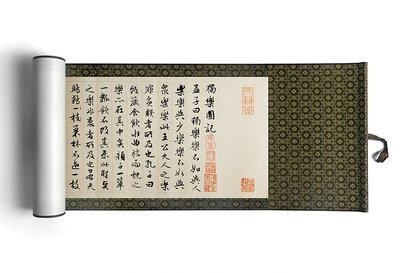 獨樂園記
孟子曰獨樂樂不如與人
樂樂與少樂樂不如與
衆樂樂此王公大人之樂
非貧賤者所及也孔子曰
飯蔬食飲水曲肱而枕之
樂亦在其中矣顏子一簞
一瓢飲不改其樂此聖賢
之樂非愚者所及也若夫
鷦鷯巢林不過一枝